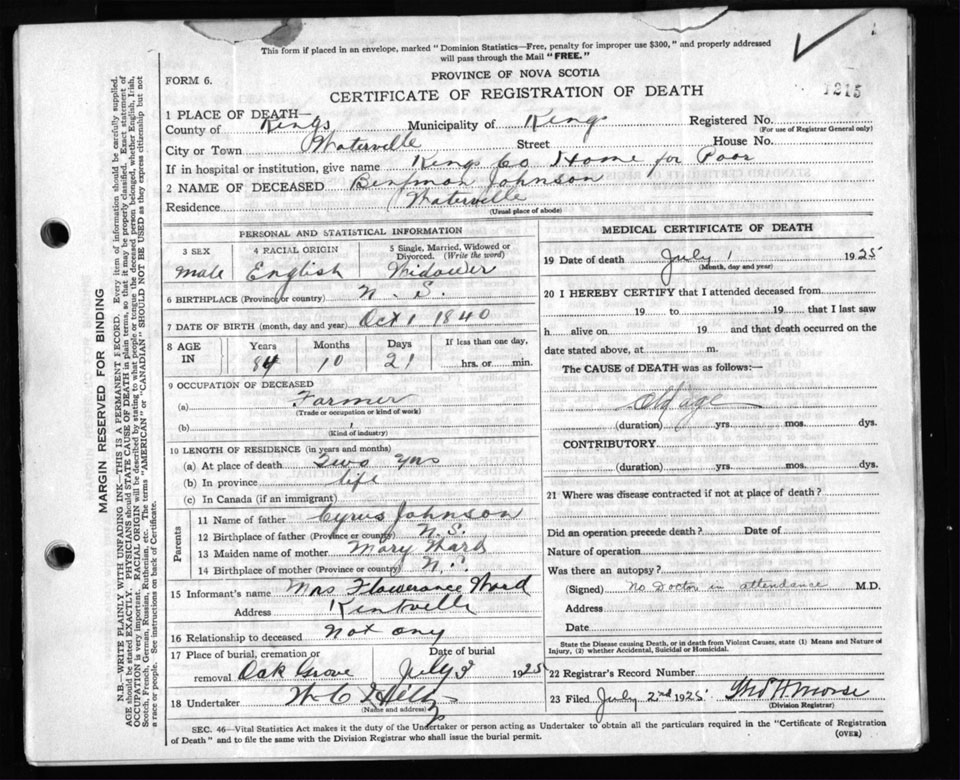 This form if placed in an envelope, marked "Dominion Statistics—Free, penalty for improper use $300," and properly addressed
will pass through the Mail "FREE."
FORM 6.
PROVINCE OF NOVA SCOTIA
CERTIFICATE OF REGISTRATION OF DEATH
1215
1 PLACE OF DEATH—
County of Kings Municipality of Kings Registered No.
(For use of Registrar General only)
City or Town Waterville Street House No.
If in hospital or institution, give name Kings Co Home for Poor
2 NAME OF DECEASED Benjman Johnson
Residence Waterville
(Usual place of abode)
PERSONAL AND STATISTICAL INFORMATION
3 SEX 4 RACIAL ORIGIN 5 Single, Married, Widowed or
Divorced. (Write the word)
Male English Widower
6 BIRTHPLACE (Province or country) N. S.
7 DATE OF BIRTH (month, day and year) Oct 1 1840
8 AGE IN Years Months Days If less than one day,
84 10 21 hrs. or min.
9 OCCUPATION OF DECEASED
(a) Farmer
(Trade or occupation or kind of work)
(b)
(Kind of industry)
10 LENGTH OF RESIDENCE (in years and months)
(a) At place of death Two yrs
(b) In province life
(c) In Canada (if an immigrant)
Parents
11 Name of father Cyrus Johnson
12 Birthplace of father (Province or country) N. S.
13 Maiden name of mother Mary
14 Birthplace of mother (Province or country) N. S.
15 Informant's name Mrs Flowerance Ward
Address Kentville
16 Relationship to deceased not any
17 Place of burial, cremation or Date of burial
removal Oak Grove July 3 1925
18 Undertaker W C
(Name and address)
MEDICAL CERTIFICATE OF DEATH
19 Date of death July 1 1925
(Month, day and year)
20 I HEREBY CERTIFY that I attended deceased from
19 to 19 that I last saw
h alive on 19 and that death occurred on
date stated above, at m.
The CAUSE of DEATH was as follows:—
Old age
(duration) yrs. mos. dys.
CONTRIBUTORY
(duration) yrs. mos. dys.
21 Where was disease contracted if not at place of death?
Did an operation precede death? Date of
Nature of operation
Was there an autopsy?
(Signed) No Doctor in attendance M.D.
Address
Date
State the Disease causing Death, or in death from Violent Causes, state (1) Means and Nature of
Injury, (2) whether Accidental, Suicidal or Homicidal.
22 Registrar's Record Number
23 Filed July 2nd 1925 Thos H Morse
(Division Registrar)
SEC. 46—Vital Statistics Act makes it the duty of the Undertaker or person acting as Undertaker to obtain all the particulars required in the "Certificate of Registration
of Death" and to file the same with the Division Registrar who shall issue the burial permit.
(OVER)
MARGIN RESERVED FOR BINDING
N.B.—WRITE PLAINLY WITH UNFADING INK—THIS IS A PERMANENT RECORD. Every item of information should be carefully supplied.
AGE should be stated EXACTLY. PHYSICIANS should STATE CAUSE OF DEATH in plain terms, so that it may be properly classified. Exact statement of
OCCUPATION is very important. RACIAL ORIGIN will be described by stating to what people or tongue the deceased person belonged, whether English, Irish,
Scotch, French, German, Russian, Ruthenian, etc. The terms "AMERICAN" or "CANADIAN" SHOULD NOT BE USED as they express citizenship but not
a race or people. See instructions on back of Certificate.